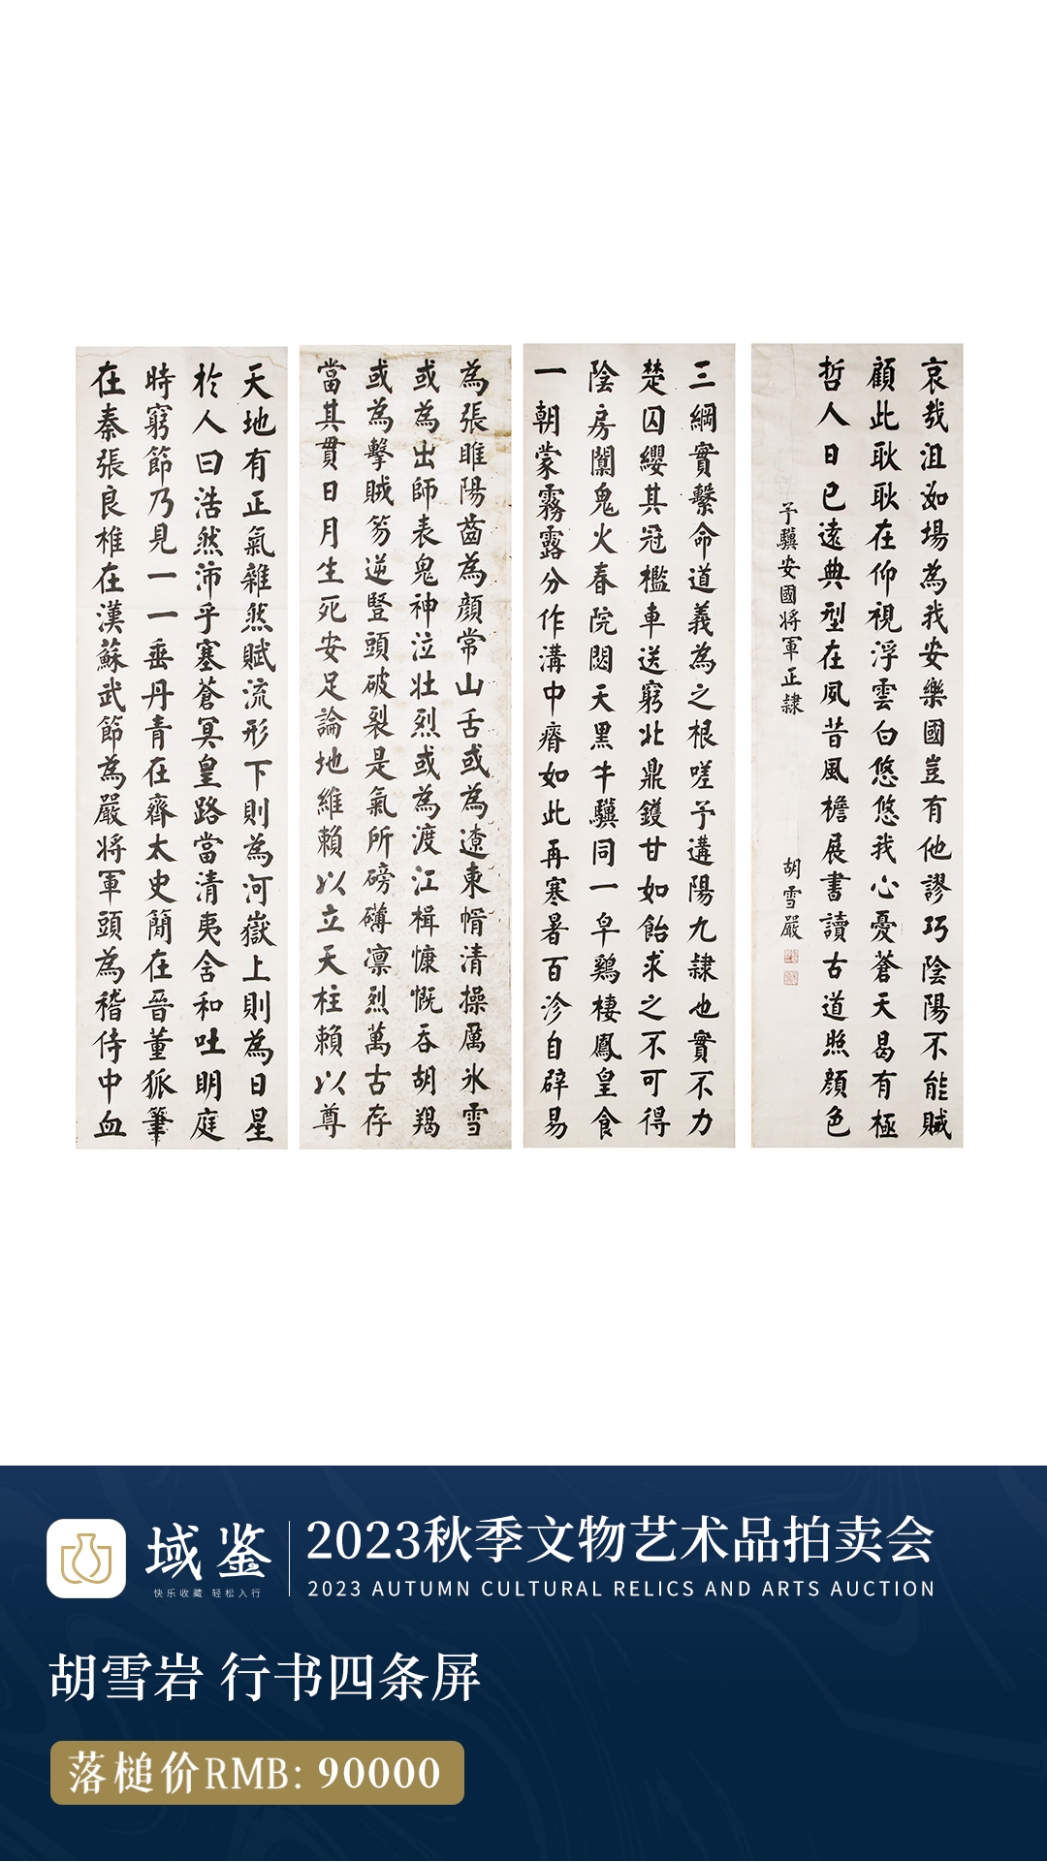 天地有正氣雜然賦流形下則為河嶽上則為日星
於人曰浩然沛乎塞蒼冥皇路當清夷含和吐明庭
時窮節乃見一一垂丹青在齊太史簡在晉董狐筆
在秦張良椎在漢蘇武節為嚴將軍頭為稽侍中血
為張睢陽齒為顏常山舌或為遼東帽清操厲冰雪
或為出師表鬼神泣壯烈或為渡江楫慷慨吞胡羯
或為擊賊笏逆豎頭破裂是氣所磅礴凛烈萬古存
當其貫日月生死安足論地維賴以立天柱賴以尊
三綱實繫命道義為之根嗟予遘陽九隸也實不力
楚囚纓其冠檻車送窮北鼎鑊甘如飴求之不可得
陰房闃鬼火春院閟天黑牛驥同一皁鷄棲鳳皇食
一朝蒙霧露分作溝中瘠如此再寒暑百沴自辟易
哀哉沮如場為我安樂國豈有他謬巧陰陽不能賊
顧此耿耿在仰視浮雲白悠悠我心憂蒼天曷有極
哲人日已遠典型在夙昔風檐展書讀古道照顏色
予驥安國將軍正隸
胡雪嚴
域鉴
快乐收藏 轻松入行
2023秋季文物艺术品拍卖会
2023 AUTUMN CULTURAL RELICS AND ARTS AUCTION
胡雪岩 行书四条屏
落槌价RMB: 90000